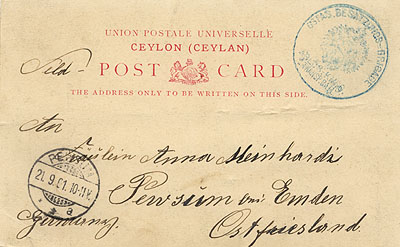 UNION POSTALE UNIVERSELLE
CEYLON (CEYLAN)
Feld-
POST CARD
THE ADDRESS ONLY TO BE WRITTEN ON THIS SIDE.
OSTAS. BESATZUNGS-BRIGADE
An
Fräulein Anna Meinhardi
PEWSUM
21.9.01.10-11.V.
* a
Pewsum bei Emden
Germany.
Ostfriesland.